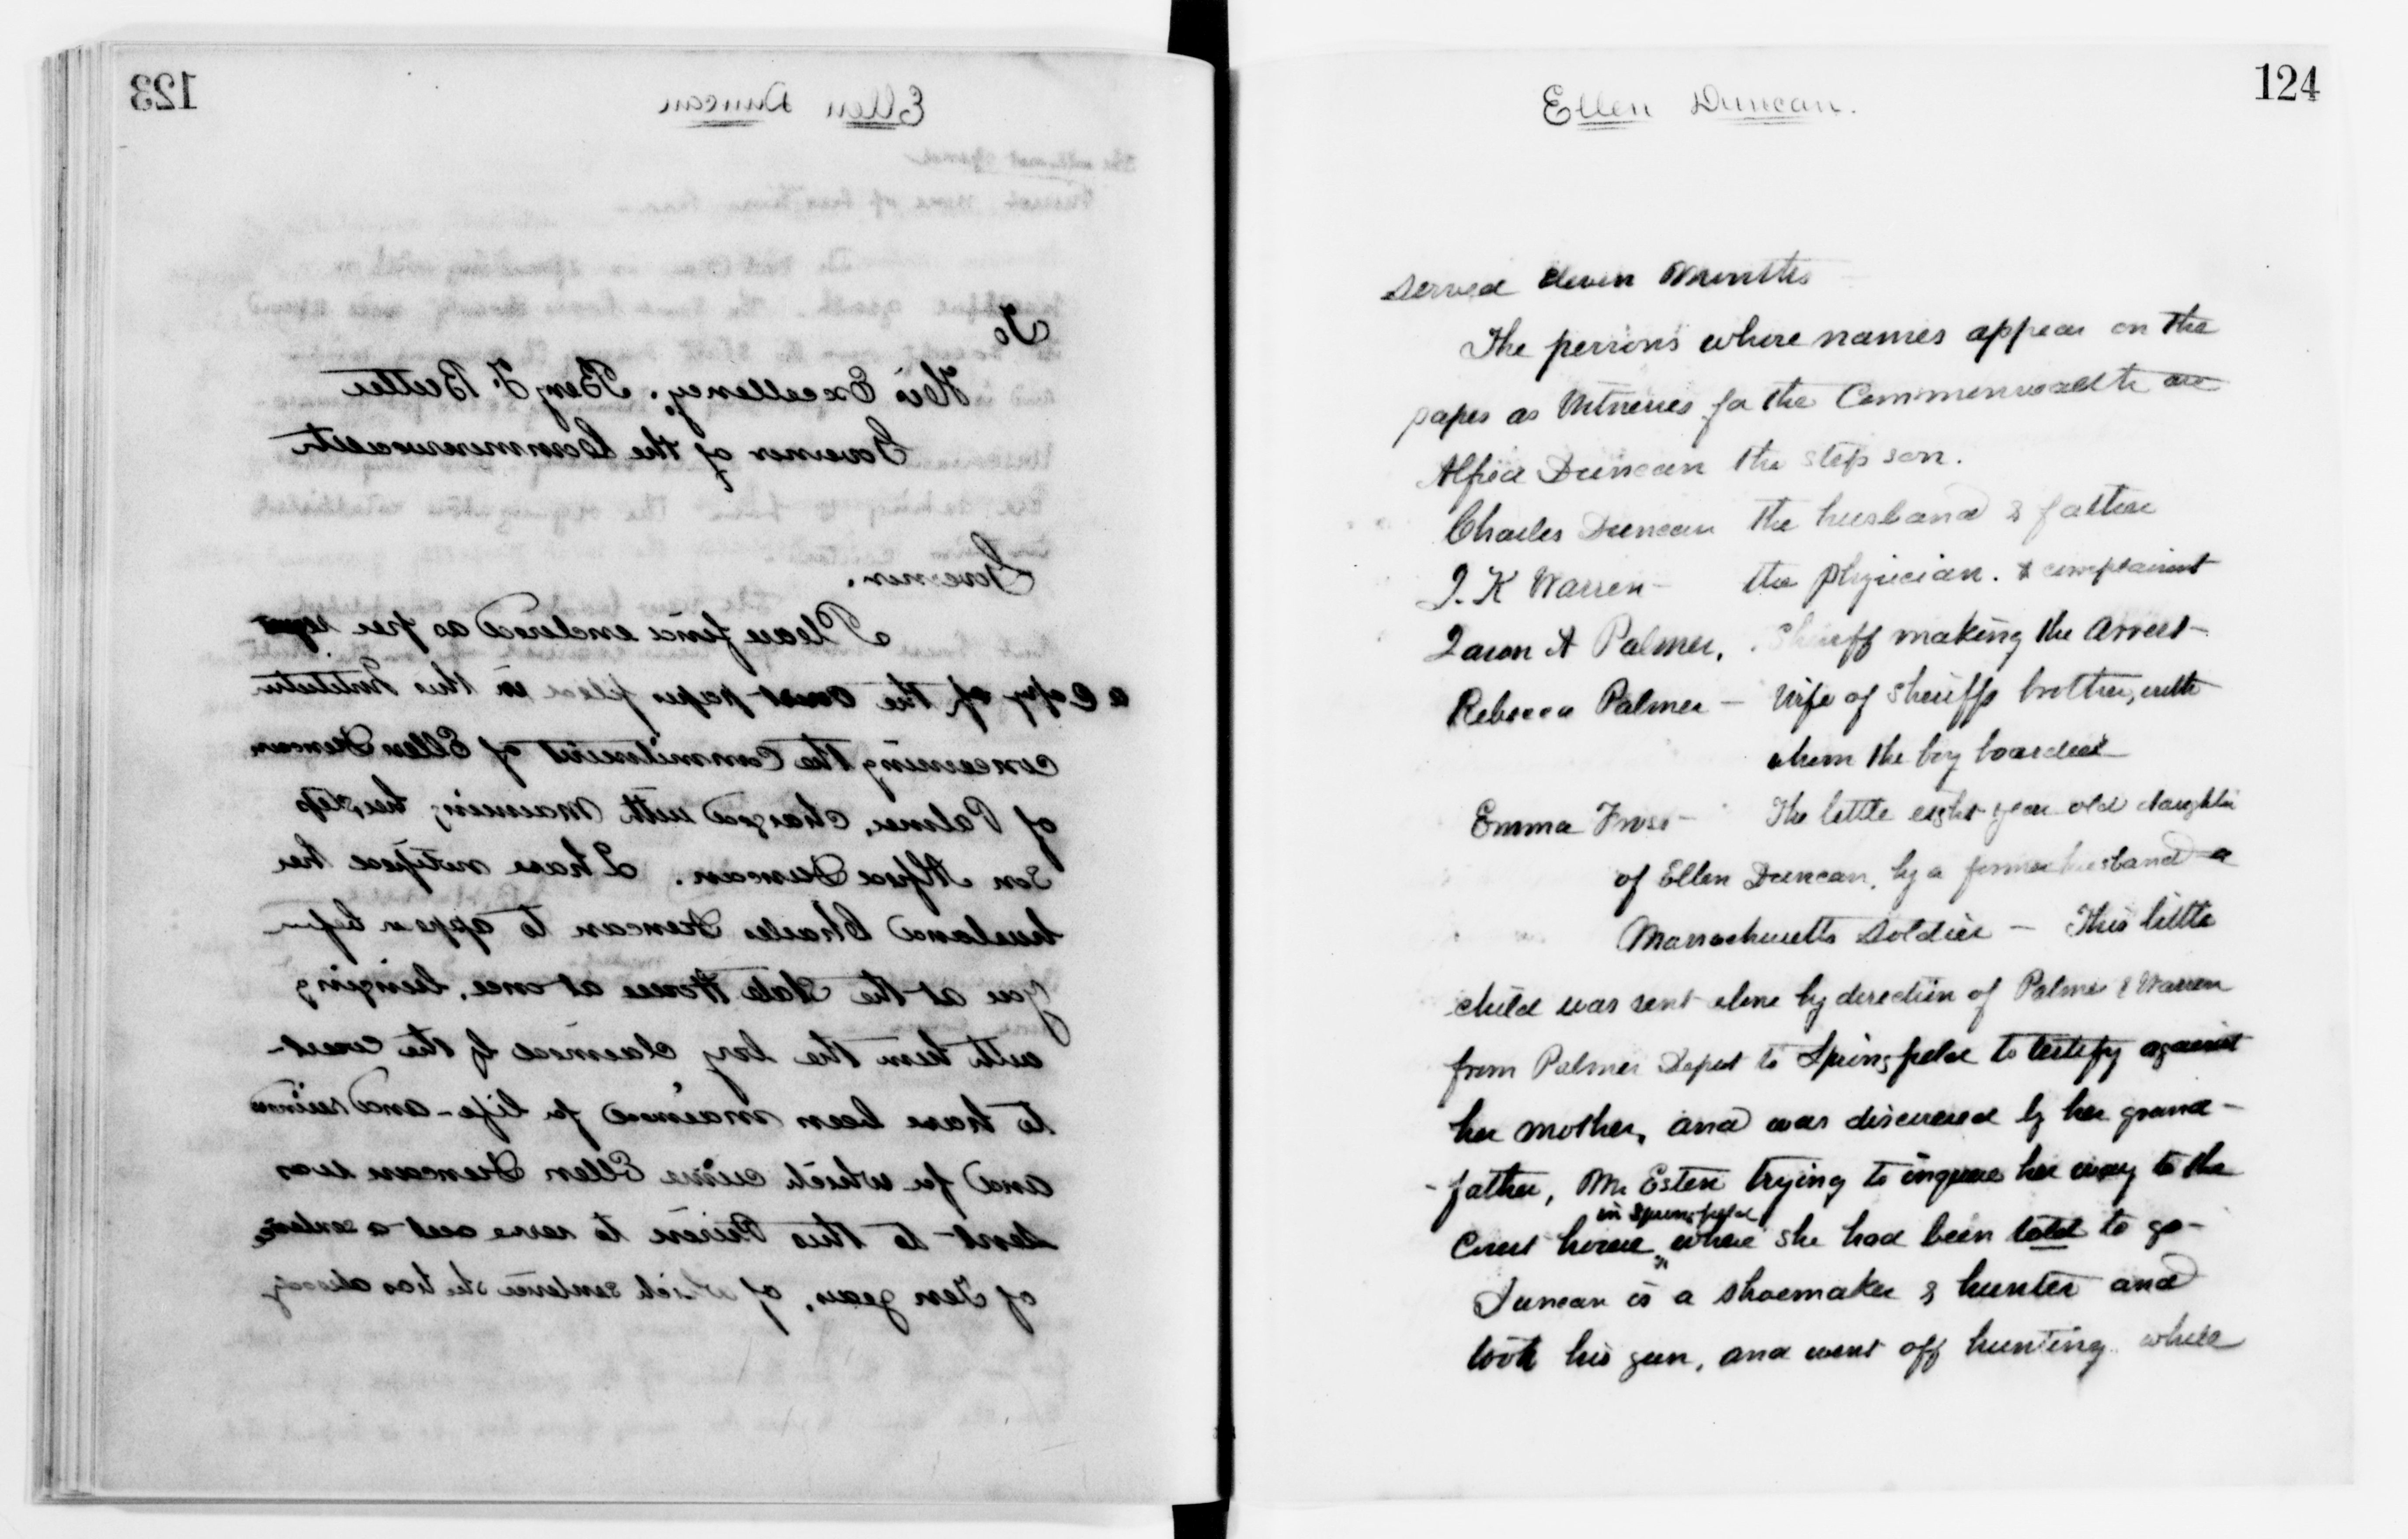 123
Ellen Duncan
To
His Excellency. Benj F. Butler
Governor of the Commonwealth
Governor.
Please find enclosed as per request
a Copy of the Court papers filed in this Institution
concerning the Commitment of Ellen Duncan
of Palmer, charged with Maiming her step
son Alfred Duncan. I have notified the
husband Charles Duncan to appear before
you at the State House at once, bringing
with him the boy claimed by the court
to have been maimed for life - and ruined
and for which crime Ellen Duncan was
sent to this Prison to serve out a sentence
of Ten years, of which sentence she has already
124
Ellen Duncan.
served eleven Months
The persons whose names appear on the
papers as Witnesses for the Commonwealth are
Alfred Duncan the step son.
Charles Duncan the husband & father
J. K Warren - the physician. & complainant
Jason A Palmer, . Sheriff making the arrest -
Rebecca Palmer - Wife of Sheriffs brother, with
whom the boy boarded
Emma Frost - The little eight year old daughter
of Ellen Duncan, by a former husband a
Massachusetts Soldier - This little
child was sent alone by direction of Palmer & Warren
from Palmer Depot to Springfield to testify against
her mother, and was discovered by her grand -
- father, Mr Esten trying to inquire her way to the
in Springfield
Court house, where she had been told to go -
Duncan is a shoemaker & hunter and
took his gun, and went off hunting while